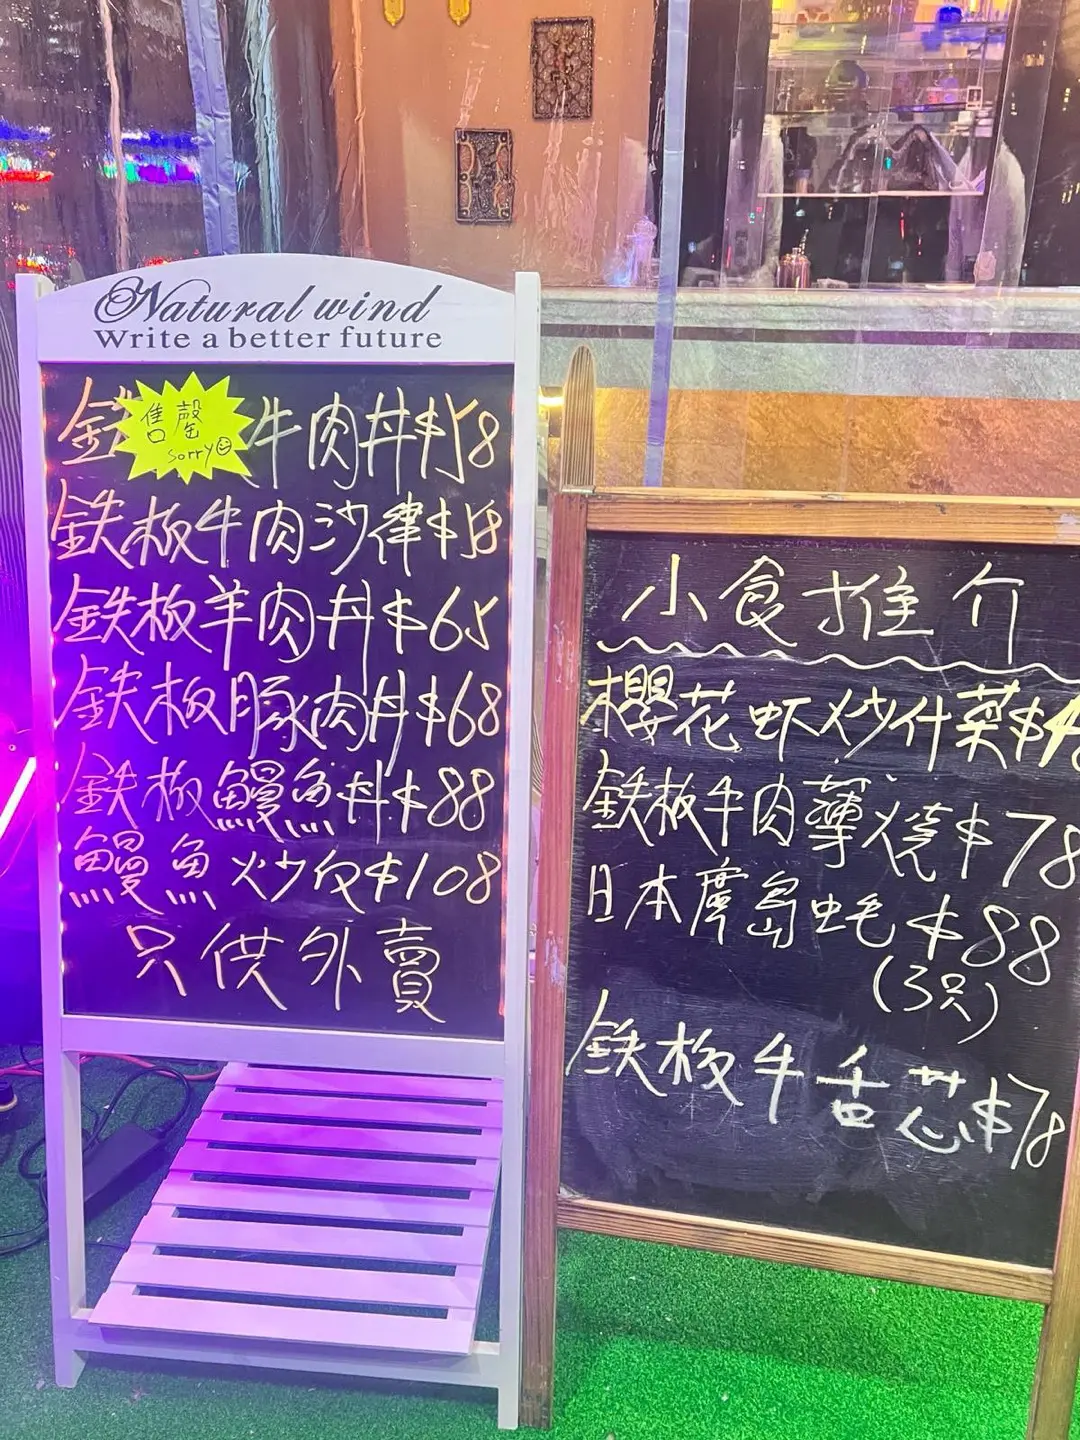 Natural wind
Write a better future
售罄
sorry
牛肉丼$58
鉄板牛肉沙律$58
鉄板羊肉丼$65
鉄板豚肉丼$68
鉄板鰻魚丼$88
鰻魚炒反$108
只供外賣
小食推介
櫻花虾炒什菜$
鉄板牛肉薄燒$78
日本廣島蚝$88
(3只)
鉄板牛舌芯$78